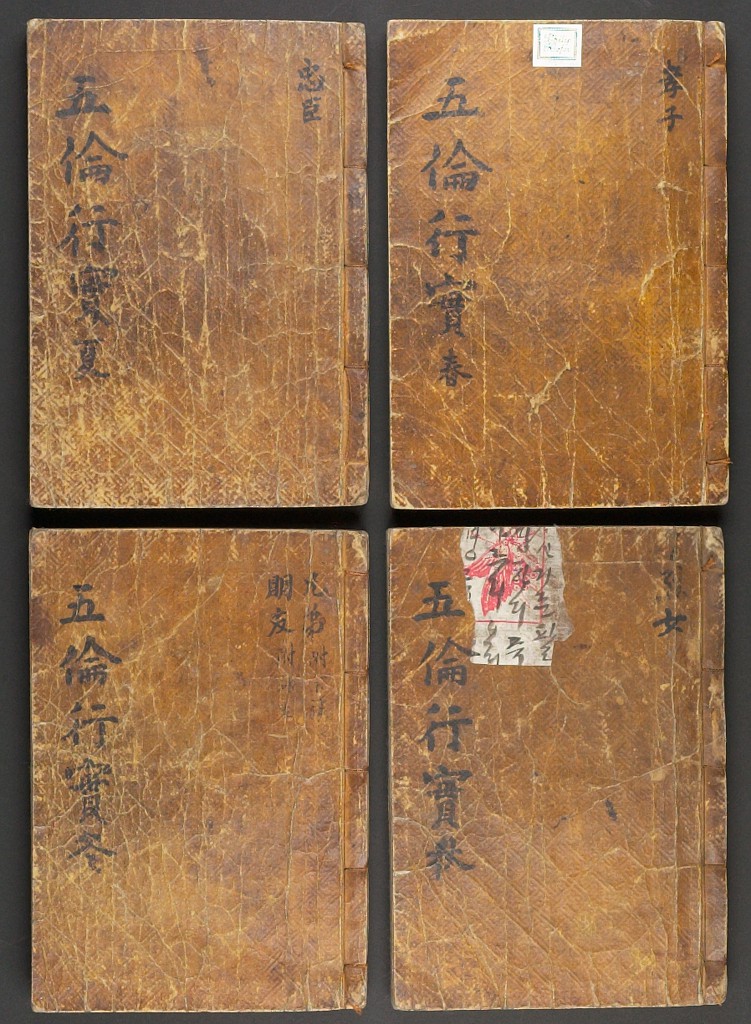 孝子
五倫行實春
忠臣
五倫行實夏
烈女
五倫行實秋
兄弟附宗族
朋友附師生
五倫行實冬